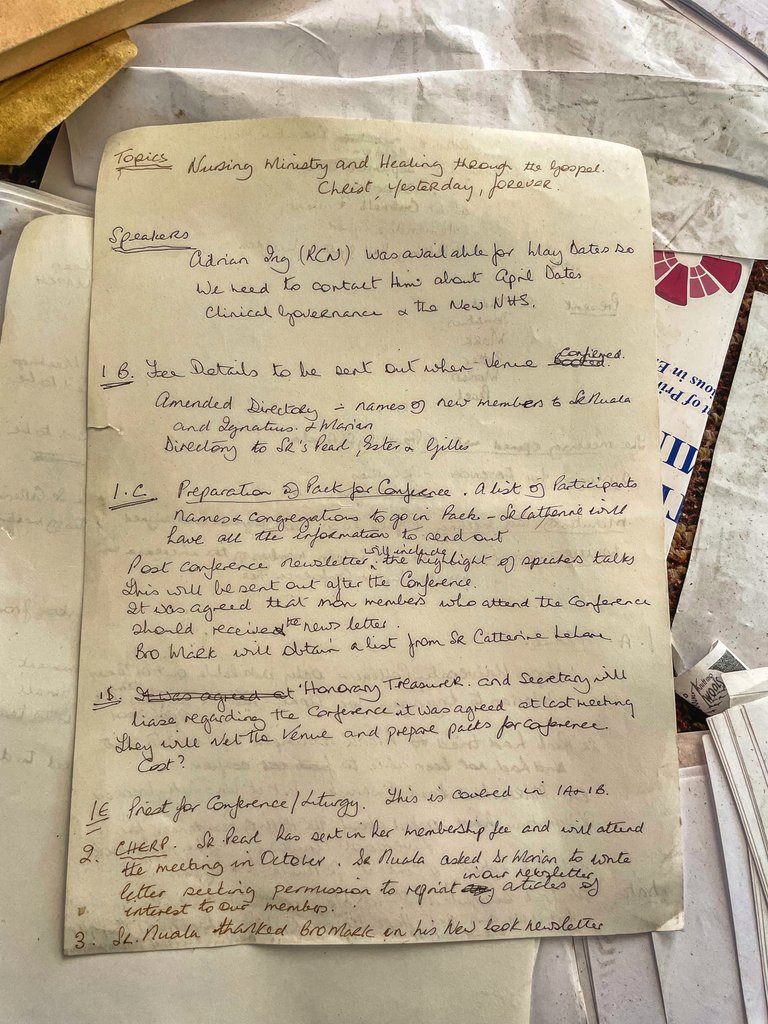 Topics Nursing Ministry and Healing through the Gospel.
Christ yesterday, forever.
Speakers
Adrian Ing (RCN) was available for May Dates so
We need to contact him about April Dates
Clinical Governance & the New NHS.
1 B. Fee Details to be sent out when Venue booked Confirmed.
Amended Directory = names of new members to Sr Nuala
and Ignatius & Marian
Directory to Sr's Pearl, Ester & Gilles
1.C. Preparation of Pack for Conference. A list of Participants
Names & congregations to go in Pack – Sr Catherine will
have all the information to send out
Post conference newsletter will include the highlight of speches talks
This will be sent out after the Conference.
It was agreed that mon members who attend the Conference
should receive the news letter.
Bro Mark will obtain a list from Sr Catherine
It was agreed at Honorary Treasurer and Secretary will
liase regarding the Conference it was agreed at last meeting
They will Vet the Venue and prepare packs for conference.
Cost?
1E Priest for Conference/Liturgy. This is covered in 1A & 1B.
2. CHERP. Sr Pearl has sent in her membership fee and will attend
the meeting in October. Sr Nuala asked Sr Marian to write
letter seeking permission to reprint any in our newsletter articles of
interest to our members.
3. Sr. Nuala thanked Bro Mark on his New look newsletter